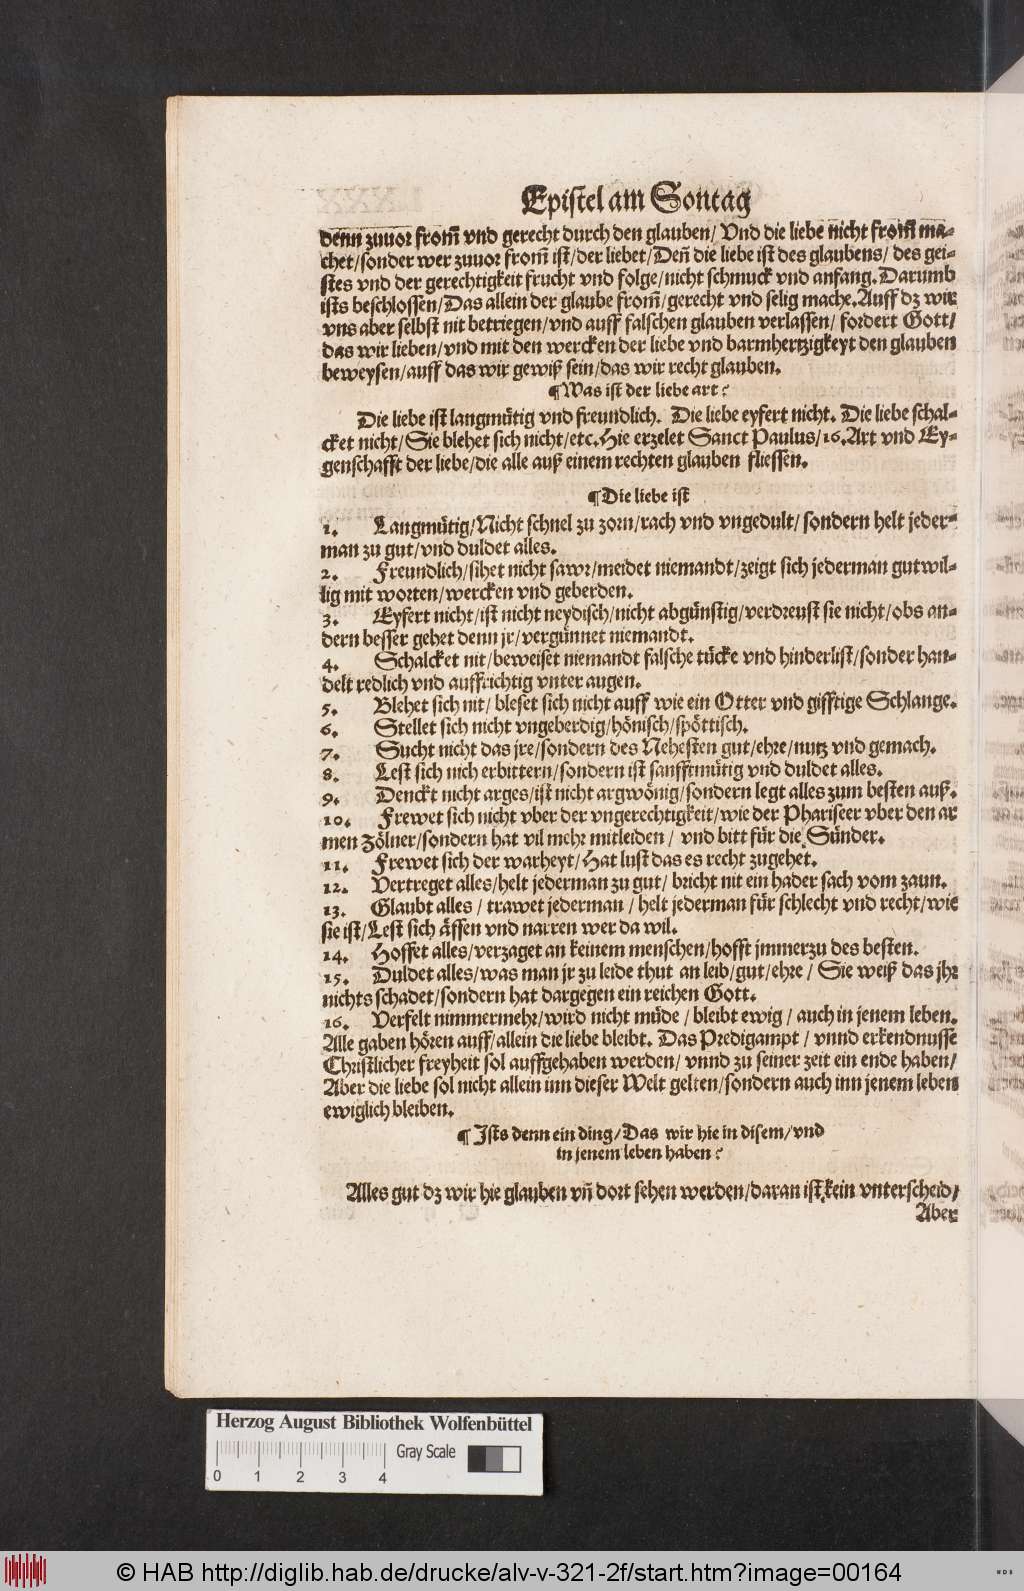 Epistel am Sontag
denn zuuor from̃ vnd gerecht durch den glauben/ Vnd die liebe nicht from̃ ma-
chet/sonder wer zuuor from̃ ist/der liebet/Deñ die liebe ist des glaubens/ des gei-
stes vnd der gerechtigkeit frucht vnd folge/nicht schmuck vnd anfang. Darumb
ists beschlossen/Das allein der glaube from̃/gerecht vnd selig mache. Auff dz wir
vns aber selbst nit betriegen/vnd auff falschen glauben verlassen/ fordert Gott/
das wir lieben/vnd mit den wercken der liebe vnd barmhertzigkeyt den glauben
beweysen/auff das wir gewiß sein/das wir recht glauben.
¶Was ist der liebe art?
Die liebe ist langmütig vnd freundlich. Die liebe eyfert nicht. Die liebe schal-
cket nicht/Sie blehet sich nicht/etc. Hie erzelet Sanct Paulus/16. Art vnd Ey-
genschafft der liebe/die alle auß einem rechten glauben fliessen.
¶Die liebe ist
1. Langmütig/Nicht schnel zu zorn/rach vnd vngedult/ sondern helt jeder-
man zu gut/vnd duldet alles.
2. Freundlich/sihet nicht sawr/meidet niemandt/zeigt sich jederman gutwil-
lig mit worten/wercken vnd geberden.
3. Eyfert nicht/ist nicht neydisch/nicht abgünstig/verdreust sie nicht/obs an-
dern besser gehet denn jr/vergünnet niemandt.
4. Schalcket nit/beweiset niemandt falsche tücke vnd hinderlist/sonder han-
delt redlich vnd auffrichtig vnter augen.
5. Blehet sich nit/ bleset sich nicht auff wie ein Otter vnd gifftige Schlange.
6. Stellet sich nicht vngeberdig/hönisch/spöttisch.
7. Sucht nicht das jre/sondern des Nehesten gut/ehre/nutz vnd gemach.
8. Lest sich nich erbittern/sondern ist sanfftmütig vnd duldet alles.
9. Denckt nicht arges/ist nicht argwönig/sondern legt alles zum besten auß.
10. Frewet sich nicht vber der vngerechtigkeit/wie der Phariseer vber den ar
men Zölner/sondern hat vil mehr mitleiden / vnd bitt für die Sünder.
11. Frewet sich der warheyt/Hat lust das es recht zugehet.
12. Vertreget alles/helt jederman zu gut/ bricht nit ein hader sach vom zaun.
13. Glaubt alles / trawet jederman / helt jederman für schlecht vnd recht/wie
sie ist/Lest sich äffen vnd narren wer da wil.
14. Hoffet alles/verzaget an keinem menschen/hofft jmmerzu des besten.
15. Duldet alles/was man jr zu leide thut an leib/gut/ehre / Sie weiß das jhr
nichts schadet/sondern hat dargegen ein reichen Gott.
16. Verfelt nimmermehr/wird nicht müde / bleibt ewig / auch in jenem leben.
Alle gaben hören auff/allein die liebe bleibt. Das Predigampt / vnnd erkendnusse
Christlicher freyheit sol auffgehaben werden/ vnnd zu seiner zeit ein ende haben/
Aber die liebe sol nicht allein inn dieser Welt gelten/sondern auch inn jenem leben
ewiglich bleiben.
¶ Ists denn ein ding/Das wir hie in disem/vnd
in jenem leben haben?
Alles gut dz wir hie glauben vñ dort sehen werden/daran ist kein vnterscheid/
Aber
Herzog August Bibliothek Wolfenbüttel
Gray Scale
0 1 2 3 4
© HAB http://diglib.hab.de/drucke/alv-v-321-2f/start.htm?image=00164